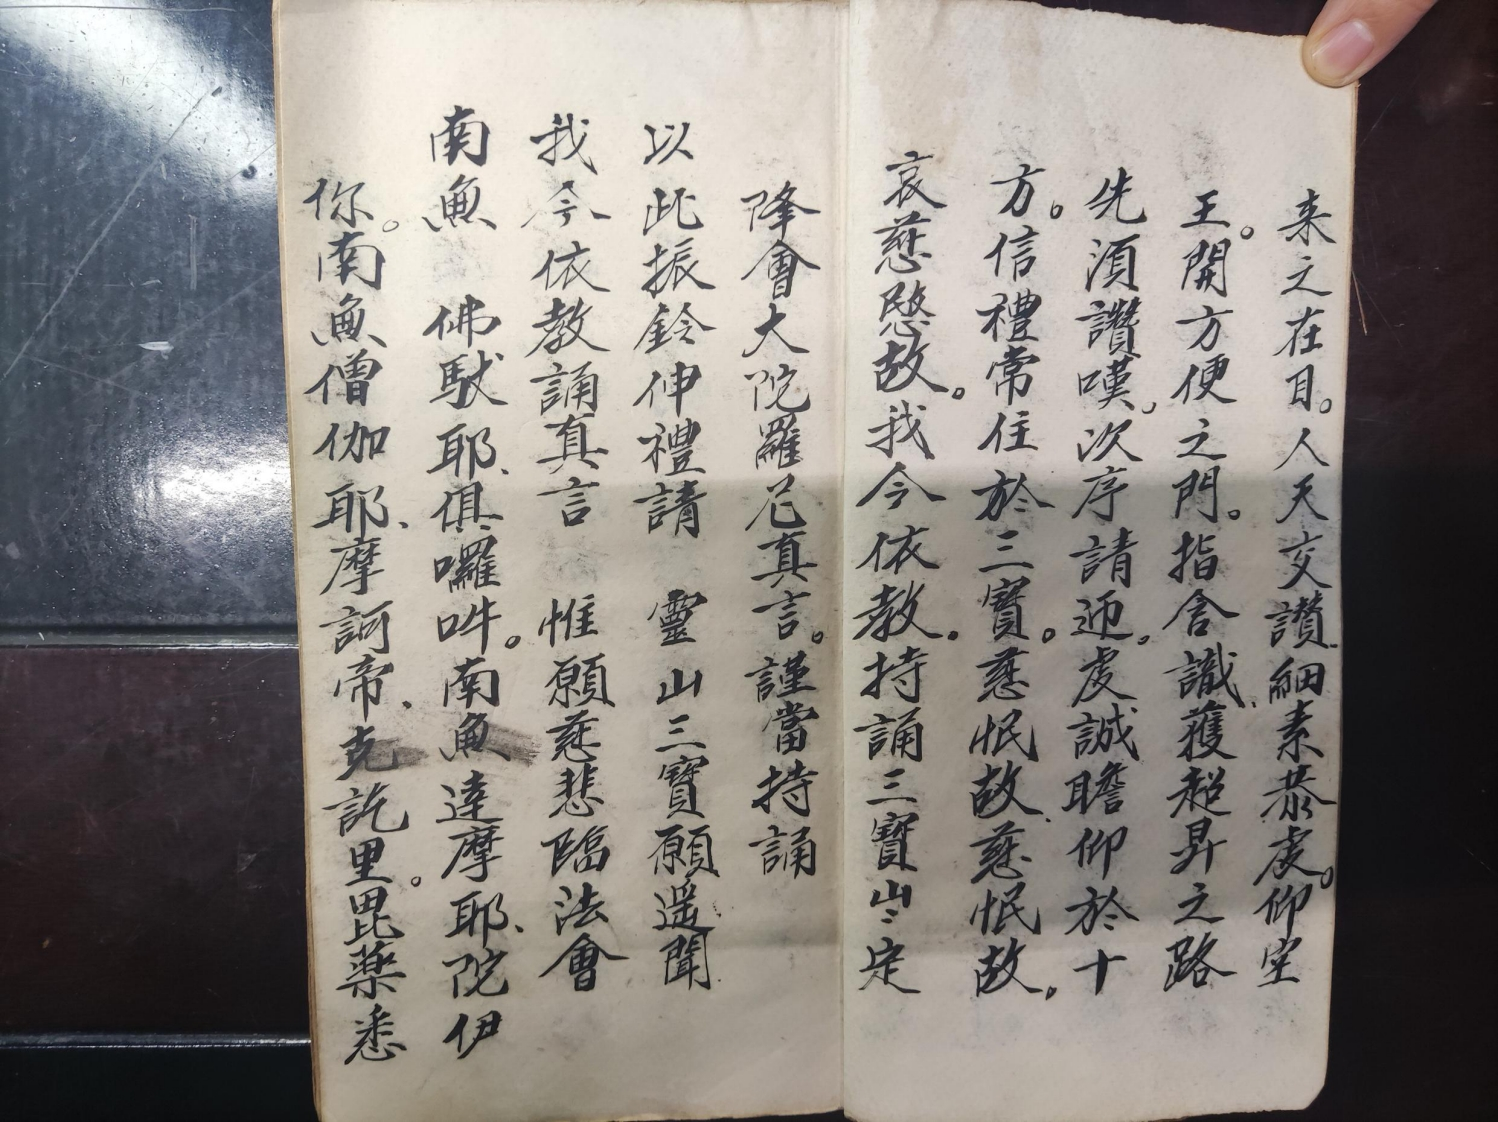 来之在目。人天交讃緇素恭虔。仰空
王。開方便之門。指含識、獲超昇之路
先湏讚嘆。次序請迎。虔誠瞻仰於十
方。信禮常住於三寶。慈愍故、慈愍故。
哀慈愍故。我今依教。持誦三寶𡵺定
降會大陀羅尼真言。謹當持誦
以此振鈴伸禮請　靈山三寶願遥聞
我今依教誦真言　惟願慈悲臨法會
南無　佛馱耶、俱囉吽。南無達摩耶、陀伊
你。南無僧伽耶、摩訶帝、克訖里。毘藥悉